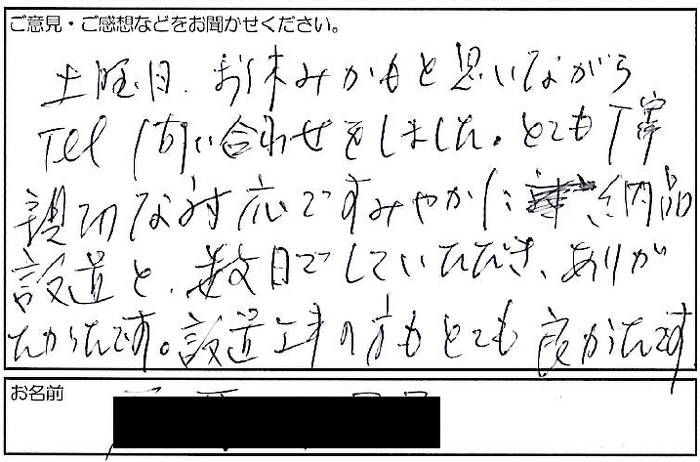 ご意見・ご感想などをお聞かせください。
土曜日、お休みかもと思いながら
Tel 問い合わせをしました。とても丁寧
親切な対応ですみやかに納品
設置と、数日でしていただき、ありが
たかったです。設置工事の方もとても良かったです。
お名前